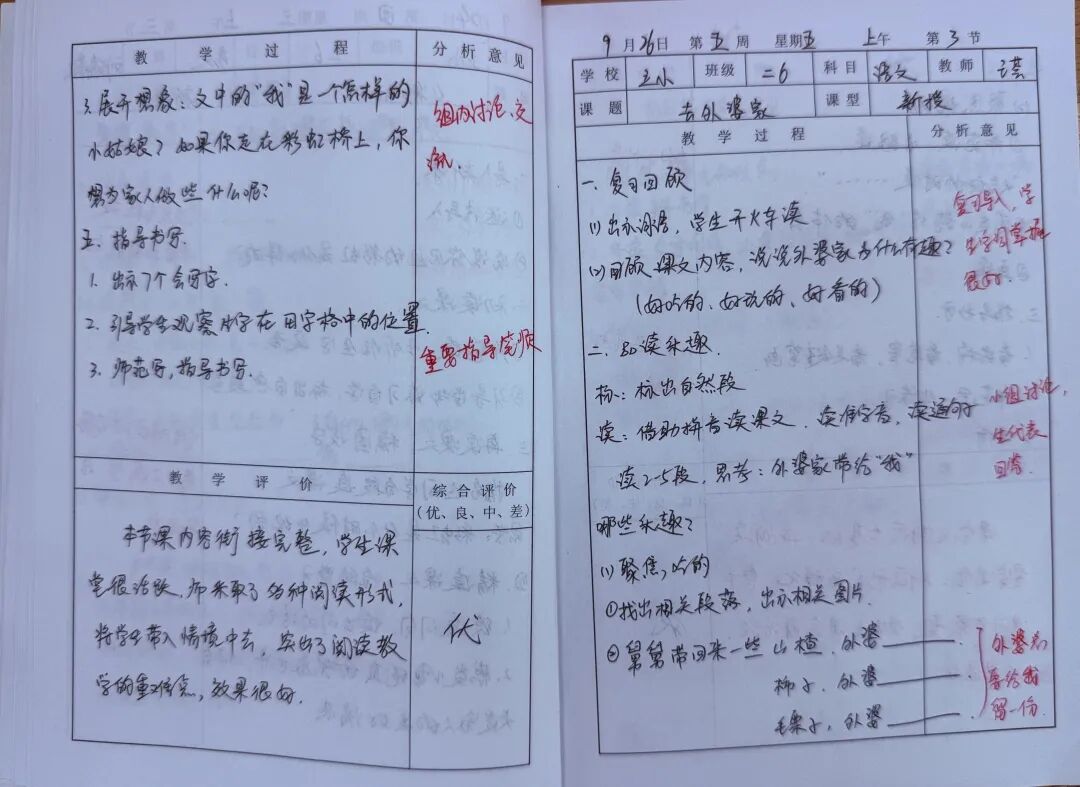 教 学 过 程 分 析 意 见
3.展开想象：文中的“我”是一个怎样的
小姑娘？如果你走在彩虹桥上，你
想为家人做些什么呢？
组内讨论，交
流.
五、指导书写.
1. 出示7个会写字.
2. 引导学生观察生字在田字格中的位置.
3. 师范写，指导书写.
重要指导笔顺
教 学 评 价 综 合 评 价
（优、良、中、差）
本节课内容衔接完整，学生课
堂很活跃，师采取了多种阅读形式，
将学生带入情境中去，突出了阅读教
学的重难点，效果很好.
优
9 月 26 日 第 五 周 星期 五 上午 第 3 节
学 校 班级 二6 科 目 语文 教 师
课 题 去外婆家 课 型 新授
教 学 过 程 分 析 意 见
一、复习回顾
(1) 出示词语，学生开火车读
(2) 回顾课文内容，说说外婆家为什么有趣？
(好吃的、好玩的、好看的)
复习导入，学
生字词掌握
很好.
二、品读乐趣.
标：标出自然段
读：借助拼音读课文，读准字音，读通句子
读2-5段，思考：外婆家带给“我”
哪些乐趣？
小组讨论，
生代表
回答.
(1) 聚焦，吃的
①找出相关段落，出示相关图片.
②舅舅带回来一些山楂，外婆
柿子，外婆
毛栗子，外婆
外婆总
要给我
留一份.